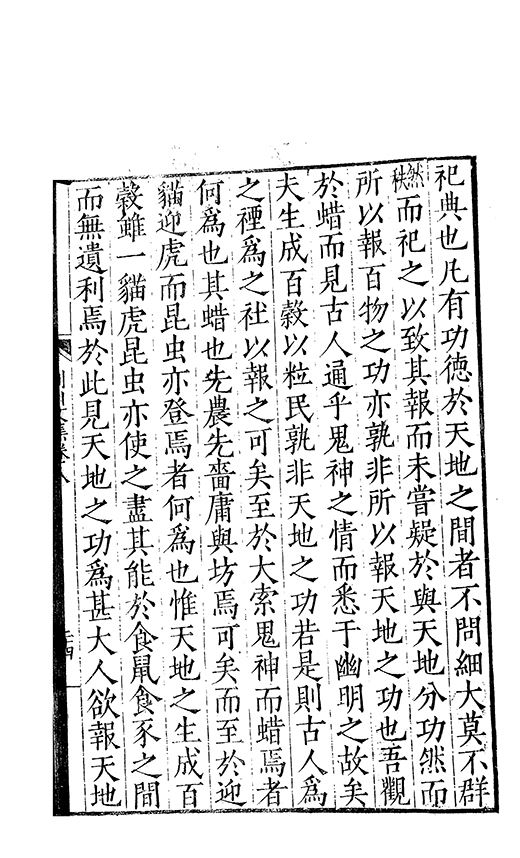 祀典也凡有功德於天地之間者不問細大莫不群
然秩而祀之以致其報而未嘗疑於與天地分功然而
所以報百物之功亦孰非所以報天地之功也吾觀
於蜡而見古人通乎鬼神之情而悉于幽明之故矣
夫生成百穀以粒民孰非天地之功若是則古人爲
之禋爲之社以報之可矣至於大索鬼神而蜡焉者
何爲也其蜡也先農先嗇庸與坊焉可矣而至於迎
貓迎虎而昆虫亦登焉者何爲也惟天地之生成百
穀雖一貓虎昆虫亦使之盡其能於食鼠食豕之間
而無遺利焉於此見天地之功爲甚大人欲報天地